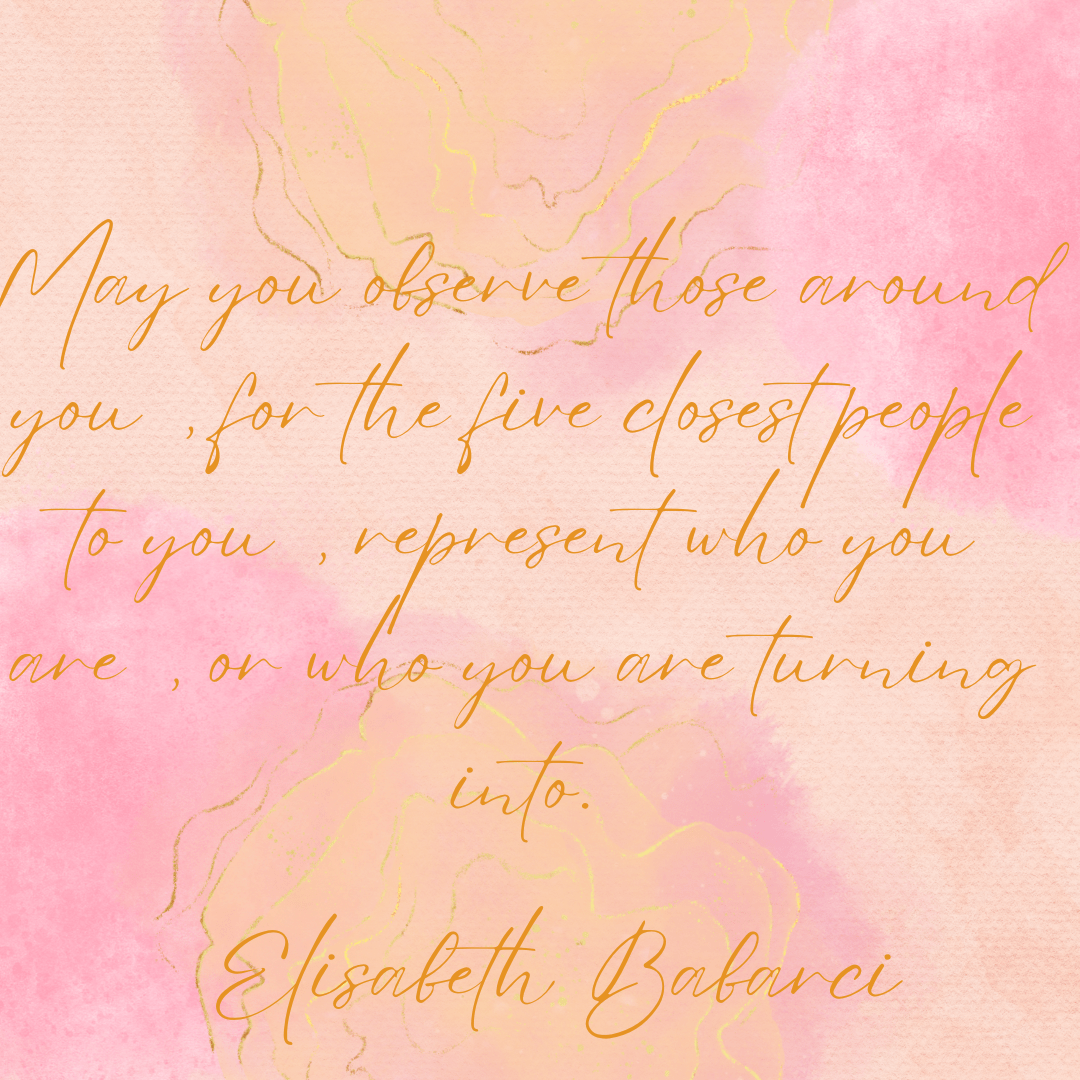 May you observe those around
you , for the five closest people
to you , represent who you
are , or who you are turning
into.
Elisabeth Babarci